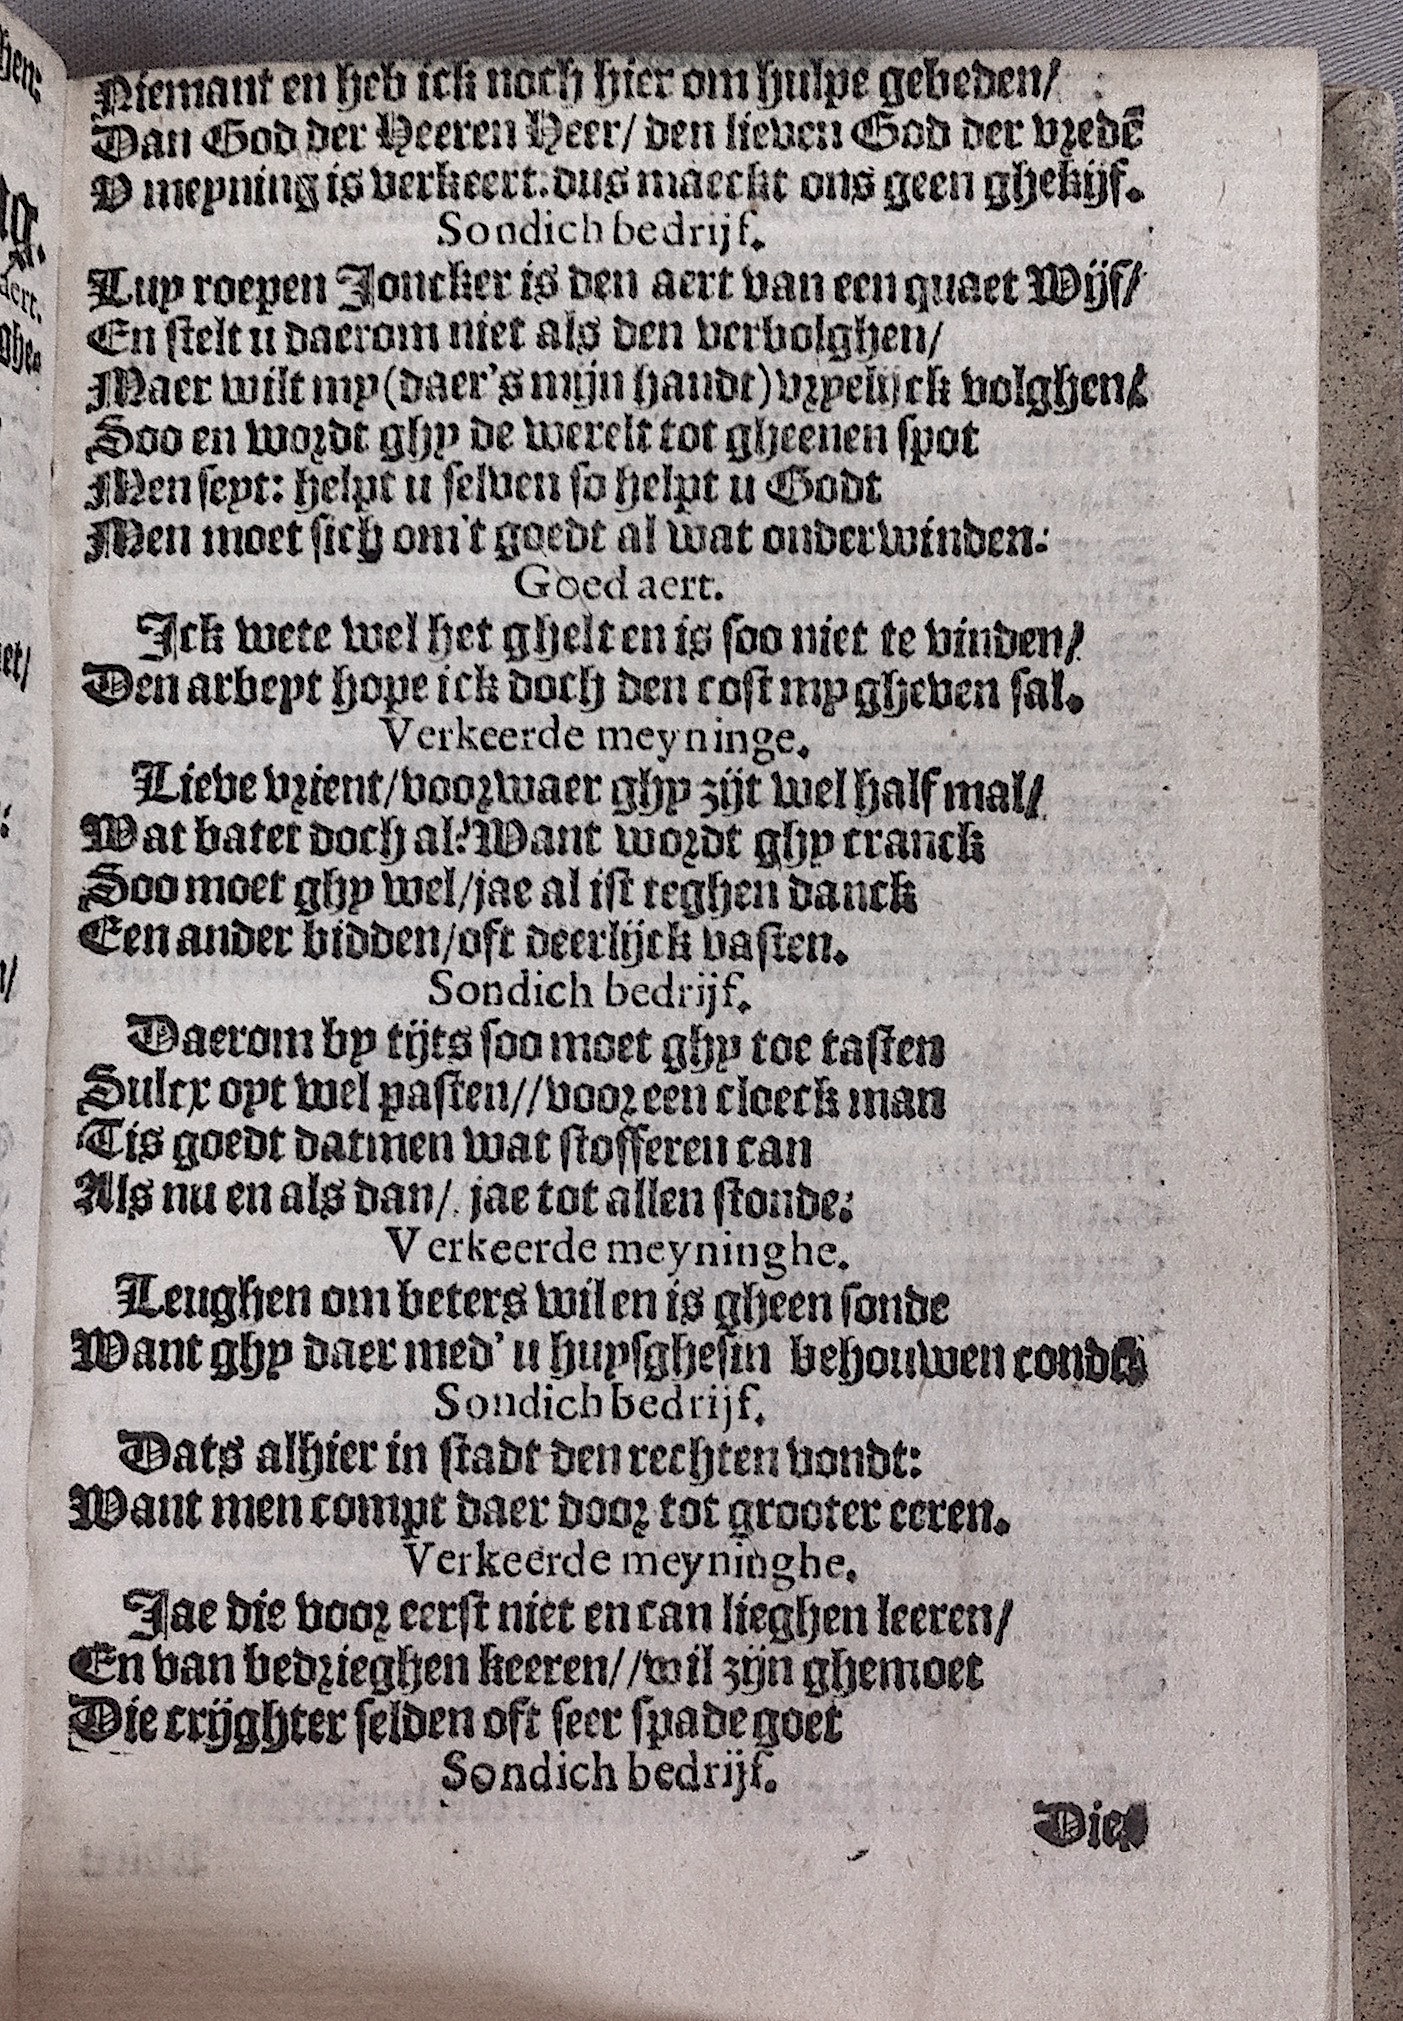 Niemant en heb ick noch hier om hulpe gebeden/
Dan God der Heeren Heer/ den lieven God der vredē
V meyning is verkeert: dus maeckt ons geen ghekijf.
Sondich bedrijf.
Luy roepen Joncker is den aert van een quaet Wijf/
En stelt u daerom niet als den verbolghen/
Maer wilt my (daer's mijn handt) vryelijck volghen/
Soo en wordt ghy de werelt tot gheenen spot
Men seyt: helpt u selven so helpt u Godt
Men moet sich om't goedt al wat onderwinden:
Goed aert.
Ick wete wel het ghelt en is soo niet te vinden/
Den arbeyt hope ick doch den cost my gheven sal.
Verkeerde meyninge.
Lieve vrient/ voorwaer ghy zijt wel half mal/
Wat batet doch al? Want wordt ghy cranck
Soo moet ghy wel/ jae al ist teghen danck
Een ander bidden/ oft deerlijck vasten.
Sondich bedrijf.
Daerom by tijts soo moet ghy toe tasten
Sulcx opt wel pasten// voor een cloeck man
Tis goedt datmen wat stofferen can
Als nu en als dan/ jae tot allen stonde:
Verkeerde meyninghe.
Leughen om beters wil en is gheen sonde
Want ghy daer med' u huysghesin behouwen
Sondich bedrijf.
Dats alhier in stadt den rechten vondt:
Want men compt daer door tot grooter eeren.
Verkeerde meyninghe.
Jae die voor eerst niet en can lieghen leeren/
En van bedrieghen keeren// wil zijn ghemoet
Die crijghter selden oft seer spade goet
Sondich bedrijf.
Die